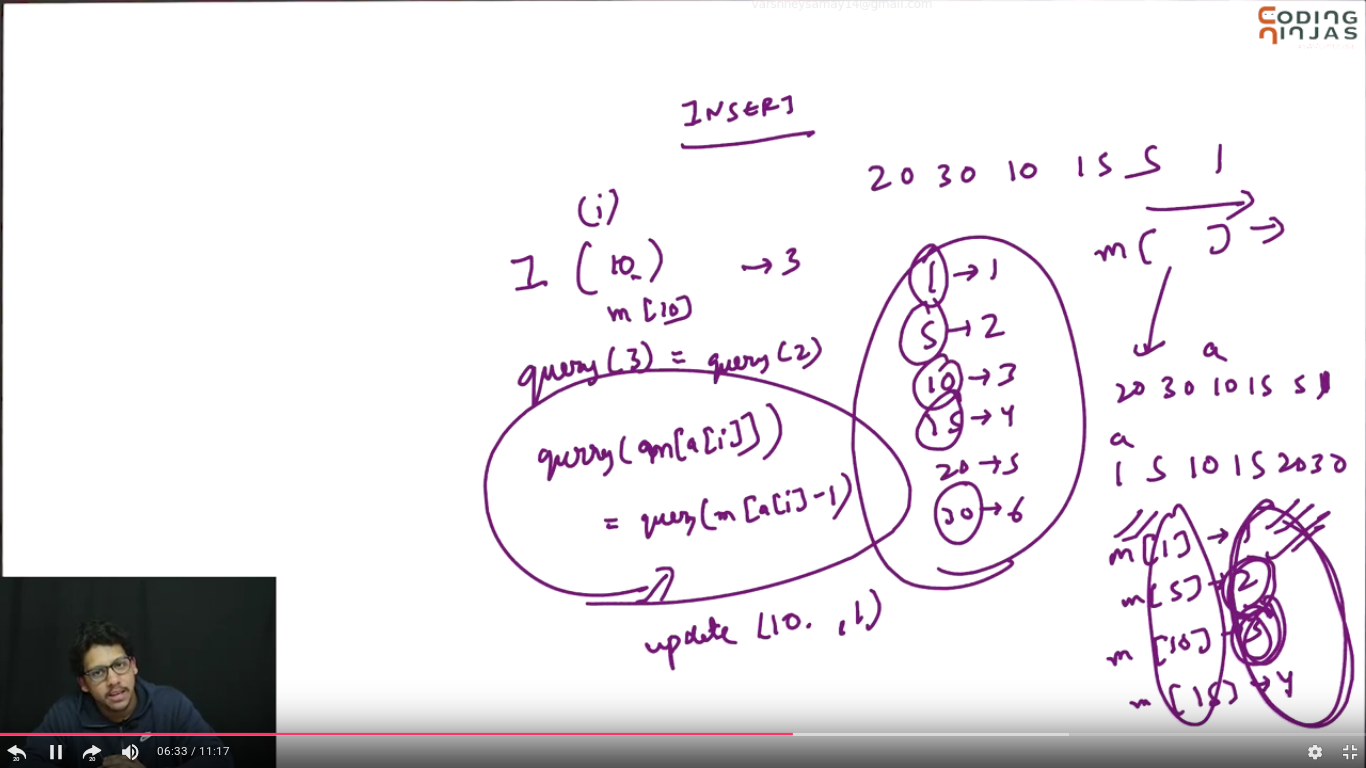 varshneysamay14@gmail.com
CODING
NINJAS
INSERT
20 30 10 15 5 1
(i)
I (10) → 3
m[10]
query(3) = query(2)
query(m[a[i]])
= query(m[a[i]-1)
update (10. , 1)
1 → 1
5 → 2
10 → 3
15 → 4
20 → 5
30 → 6
m[ ] →
a
20 30 10 15 5 1
a
1 5 10 15 20 30
m[1] → 1
m[5] → 2
m[10] → 3
m[15] → 4
20
20
06:33 / 11:17